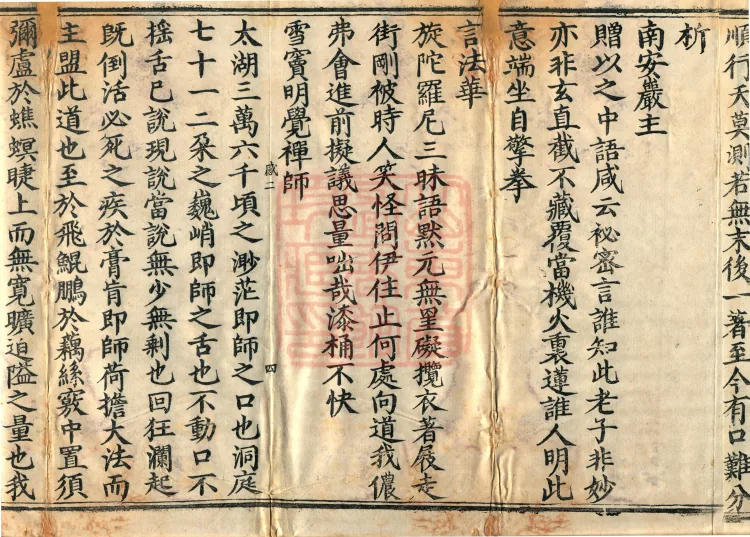 順行天莫測若無末後一著至今有口難分
析
南安巖主
贈以之中語咸云祕密言誰知此老子非妙
亦非玄直截不藏覆當機火裏蓮誰人明此
意端坐自擎拳
言法華
旋陀羅尼三昧語默元無罣礙攬衣著屐走
街剛被時人笑怪問伊住止何處向道我儂
弗會進前擬議思量咄哉漆桶不快
雪竇明覺禪師
咸二
四
太湖三萬六千頃之渺茫即師之口也洞庭
七十一二朶之巍峭即師之舌也不動口不
揺舌已說現說當說無少無剰也回狂瀾起
旣倒活必死之疾於膏肓即師荷擔大法而
主盟此道也至於飛鯤鵬於藕絲竅中置須
彌盧於蟭螟睫上而無寬曠迫隘之量也我